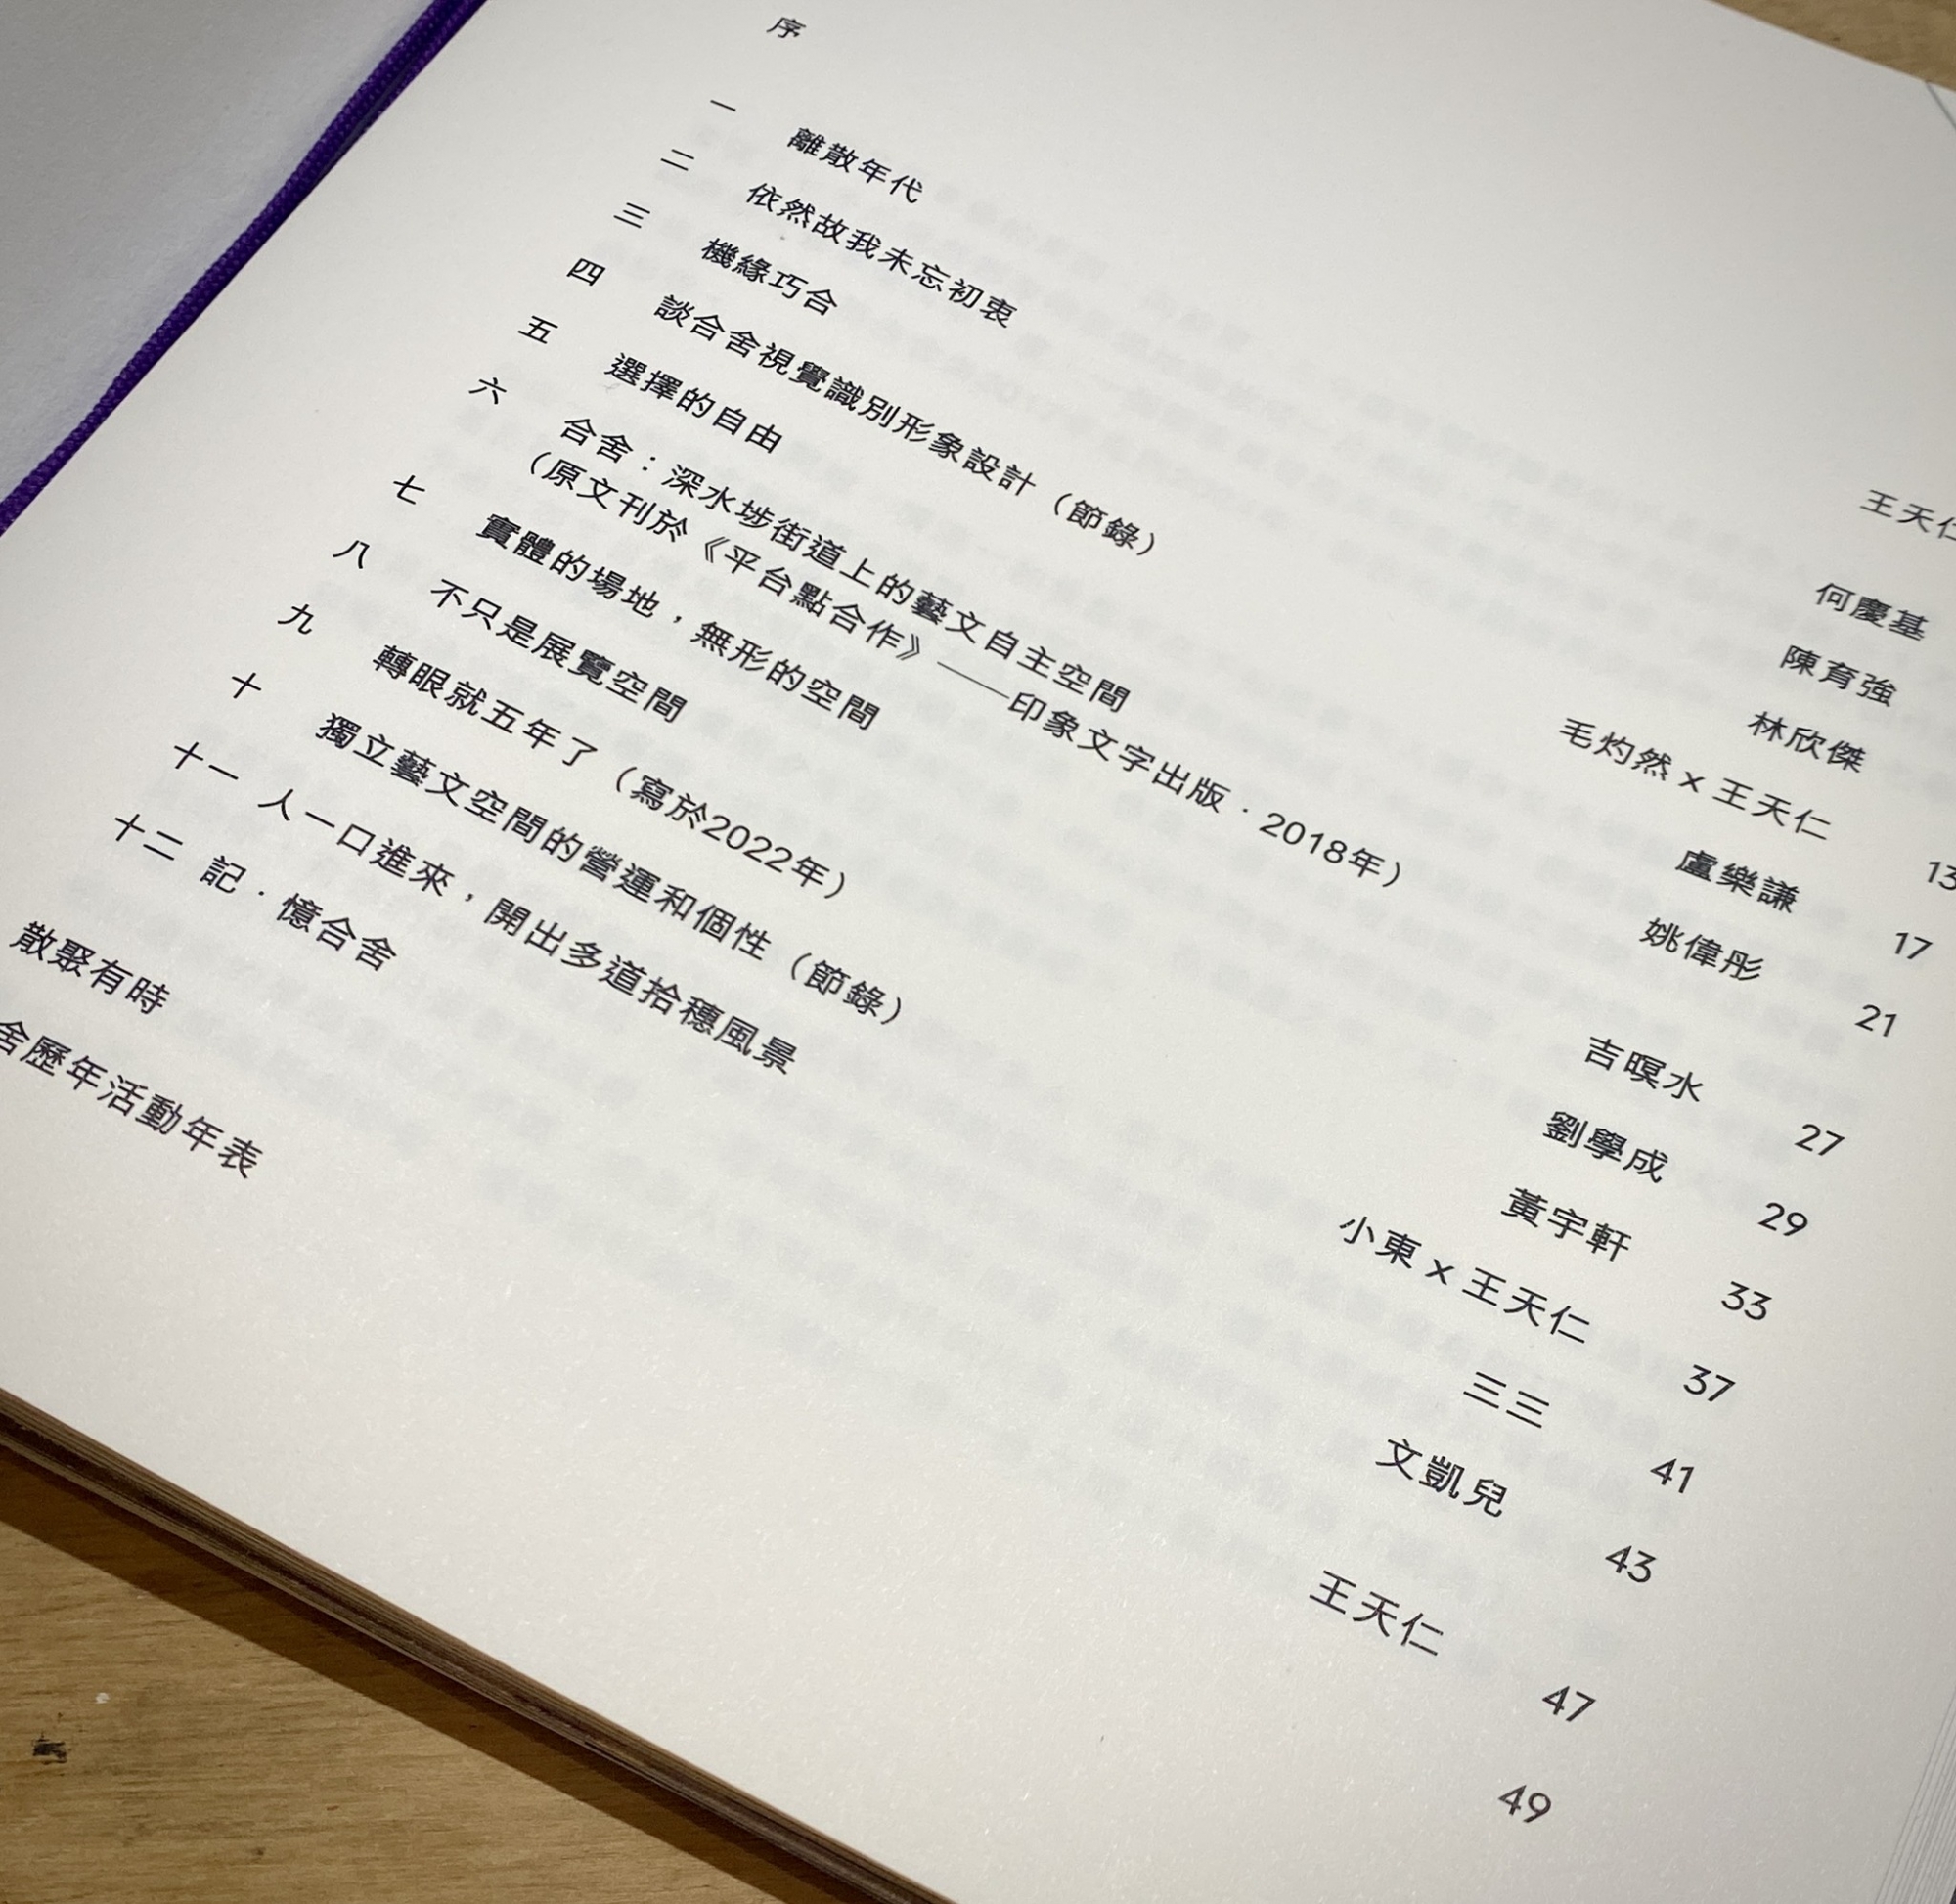 序 王天仁
一 離散年代 何慶基
二 依然故我未忘初衷 陳育強
三 機緣巧合 林欣傑
四 談合舍視覺識別形象設計（節錄） 毛灼然 x 王天仁 13
五 選擇的自由 盧樂謙 17
六 合舍：深水埗街道上的藝文自主空間 姚偉彤 21
（原文刊於《平台點合作》——印象文字出版．2018年）
七 實體的場地，無形的空間 吉暝水 27
八 不只是展覽空間 劉學成 29
九 轉眼就五年了（寫於2022年） 黃宇軒 33
十 獨立藝文空間的營運和個性（節錄） 小東 x 王天仁 37
十一 人一口進來，開出多道拾穗風景 三三 41
十二 記．憶合舍 文凱兒 43
散聚有時 王天仁 47
舍歷年活動年表 49